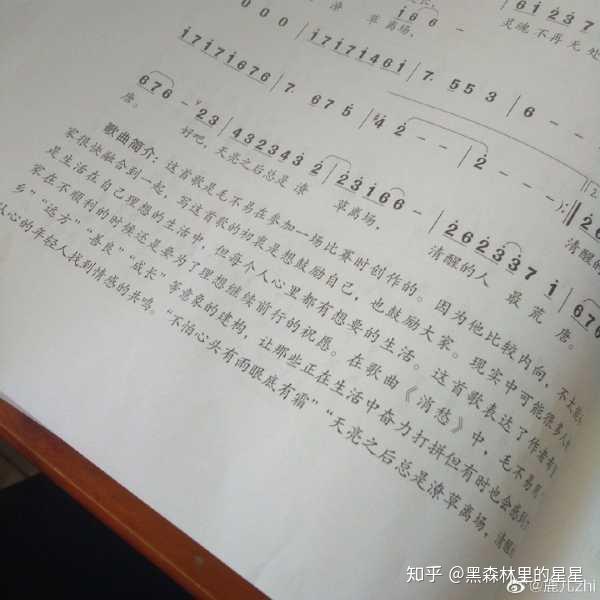 潦
草离场，
灵魂不再无处
0 0 0
6 1 2 3 7
1 7 1 7 1 7 6 7 6 | 7. 6 7 5 | 4 2 - - | 2 - - -
1 7 1 7 1 7 1 4 6 1 | 7. 5 5 3 | 6 - -
6 7 6 - 2 3 | 4 3 2 3 4 3 2 | 2 3 1 6 6 - | 2 6 2 3 3 7 1 | 6 7 6
唐。 好吧，天亮之后总是潦 草离场， 清醒的人 最荒 唐。
清醒的
歌曲简介：这首歌是毛不易在参加一场比赛时创作的。因为他比较内向，不太能
家很快融合到一起，写这首歌的初衷是想鼓励自己，也鼓励大家。现实中可能很多人
是生活在自己理想的生活中，但每个人心里都有想要的生活。这首歌表达了作者
家在不顺利的时候还是要为了理想继续前行的祝愿。在歌曲《消愁》中，毛不易用
乡”“远方”“善良”“成长”等意象的建构，让那些正在生活中奋力打拼但有时也会感到
心的年轻人找到情感的共鸣。“不怕心头有雨眼底有霜”“天亮之后总是潦草离场，清醒
知乎 @黑森林里的星星
@鹿几zhi